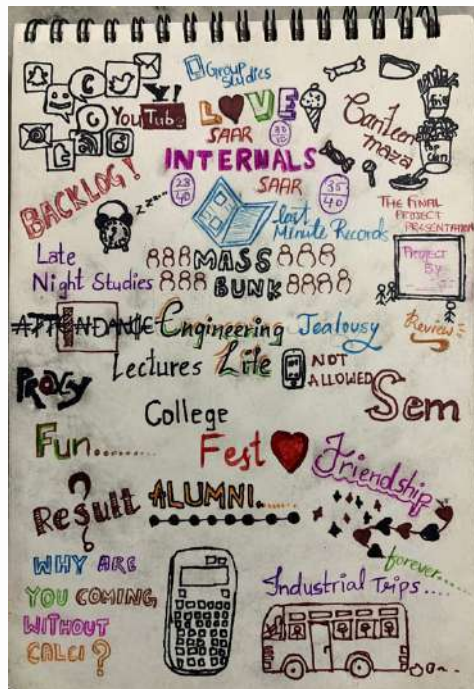 Group Studies
YouTube
LOVE
SAAR
30
40
Canteen
maza
fris
Pop
corn
INTERNALS
SAAR
23
40
35
40
BACKLOG!
zzz...
last
Minute Records
THE FINAL
PROJECT
PRESENTATION
PROJECT
By
Late
Night Studies
MASS
BUNK
Review
ATTENDANCE
Engineering
Life
Jealousy
Lectures
NOT
ALLOWED
Proxy
Sem
College
Fest
Fun........
Friendship
forever......
Result
ALUMNI.....
WHY ARE
YOU COMING
WITHOUT
CALCI?
Industrial Trips....